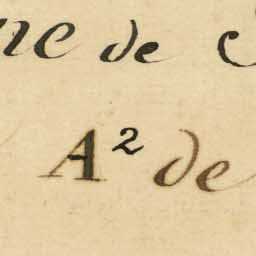 ne de
A² de